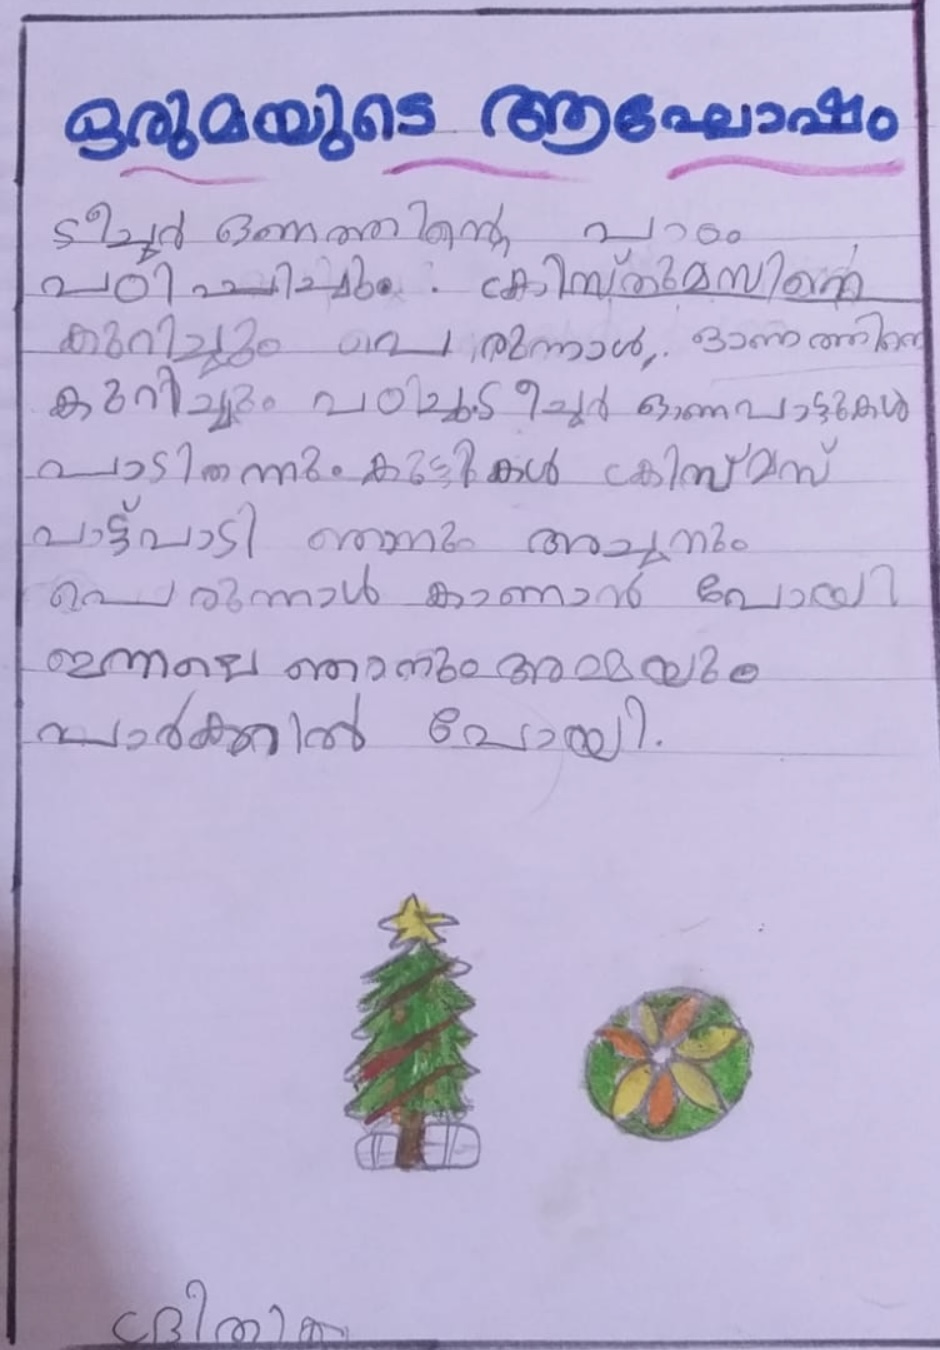 ഒരുമയുടെ ആഘോഷം
ടീച്ചർ ഒണത്തിന്റെ പാഠം
പഠിപ്പിച്ചും. ക്രിസ്തുമസിന്റെ
കുറിച്ചും പെരുന്നാൾ, ഓണത്തിനെ
കുറിച്ചും പഠിച്ചു ടീച്ചർ ഓണപാട്ടുകൾ
പാടിതന്നും കുട്ടികൾ ക്രിസ്മസ്
പാട്ട്പാടി ഞാനും അച്ചനും
പെരുന്നാൾ കാണാൻ പോയി
ഇന്നലെ ഞാനും അമ്മയും
പാർക്കിൽ പോയി.